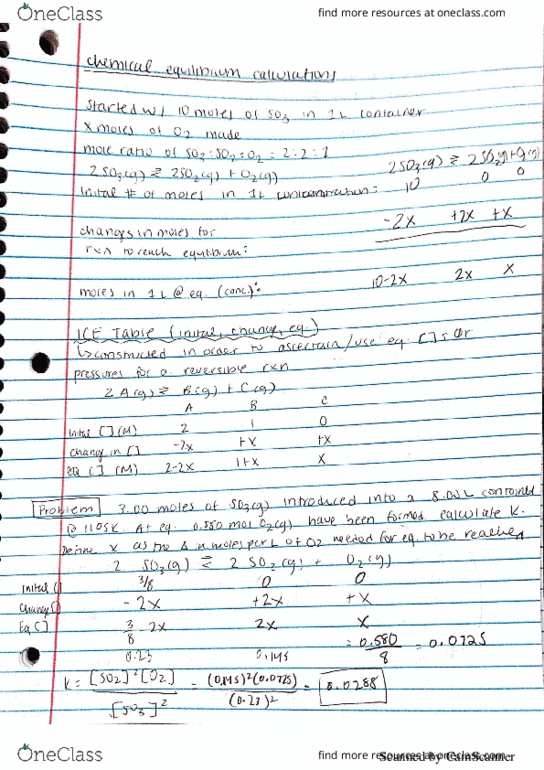 OneClass
find more resources at oneclass.com
chemical equilibrium calculations
started w/ 10 moles of SO3 in 1L container
x moles of O2 made
mole ratio of SO3:SO2:O2 = 2:2:1
2SO3(g) ⇌ 2SO2(g) + O2(g)
2SO3(g) ⇌ 2SO2(g) + O2(g)
Initial # of moles in 1L concentration = 10 0 0
changes in moles for -2x +2x +x
rxn to reach equilibium:
moles in 1L @ eq. (conc.): 10-2x 2x x
ICE Table (initial, change, eq.)
↳ constructed in order to ascertain/use eq. [ ]s or
pressures for a reversible rxn
2 A(g) ⇌ B(g) + C(g)
A B C
Initial [ ] (M) 2 1 0
change in [ ] -2x +x +x
eq [ ] (M) 2-2x 1+x x
Problem 3.00 moles of SO3(g) introduced into a 8.00L
@ 1105K. At eq. 0.580 mol O2(g) have been formed. calculate K.
Define x as the Δ in moles per L of O2 needed for eq to be reached
2 SO3(g) ⇌ 2 SO2(g) + O2(g)
Initial [ ] 3/8 0 0
Change [ ] -2x +2x +x
Eq [ ] 3/8 - 2x 2x x
0.23 0.145 = 0.580/8 = 0.0725
K = [SO2]²[O2]/[SO3]² = (0.145)²(0.0725)/(0.23)² = 0.0288
OneClass
find more resources at oneclass.com
Scanned by CamScanner